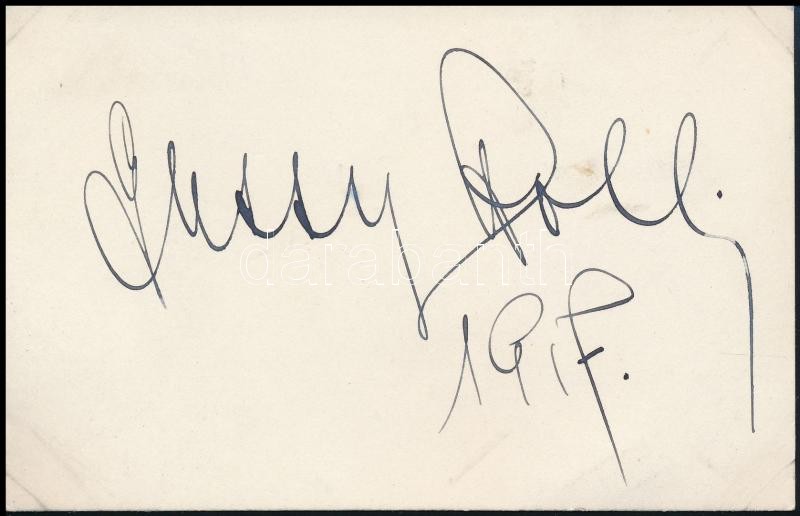 Gussy Holl.
darabanth
1917.